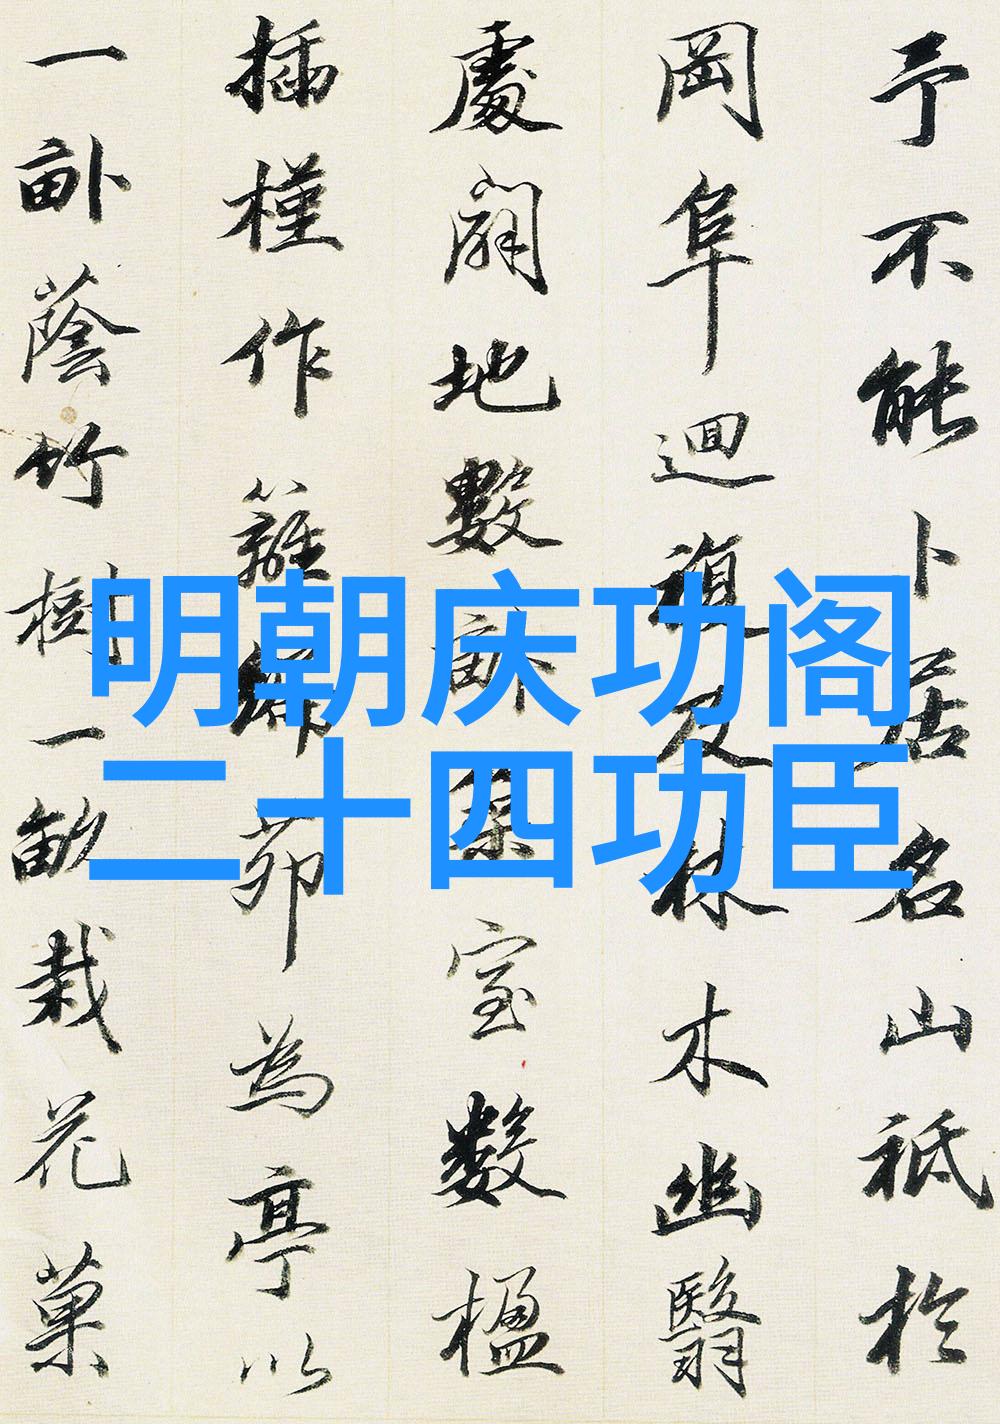 明朝庆功阁
二十四功臣
予不能卜居名山祗於
岡阜迴複及林木幽翳
處闢地數畝築室數楹
插槿作籬編茆為亭以
一畝蔭竹樹一畝栽花菓